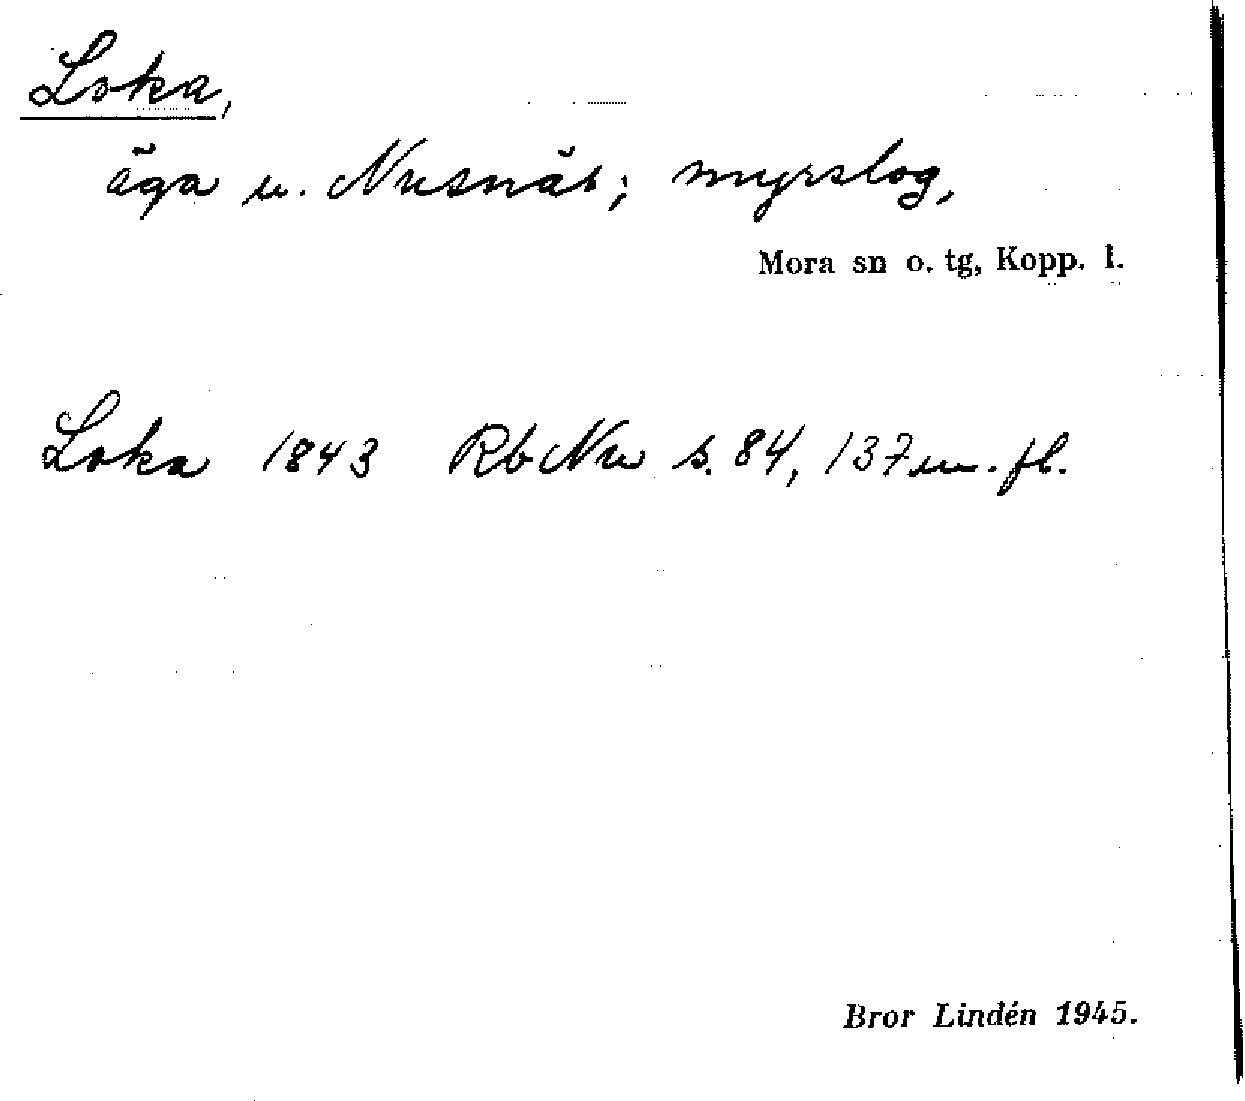 Loka,
äga u. Nusnäs; myrslog,
Mora sn o. tg, Kopp. l.
Loka 1843 RbNu s. 84, 137 m. fl.
Bror Lindén 1945.